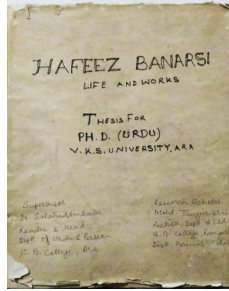 HAFEEZ BANARSI
LIFE AND WORKS
THESIS FOR
PH.D. (URDU)
V.K.S. UNIVERSITY, ARA
Supervisor
Dr.
Reader & Head
Deptt of Urdu & Persian
College, Ara
Research Scholar
Md.
Lecturer, Deptt of Urdu
G.B. College
Distt